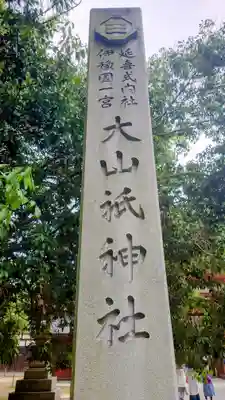 延喜式内社
伊豫國一宮
大山祇神社